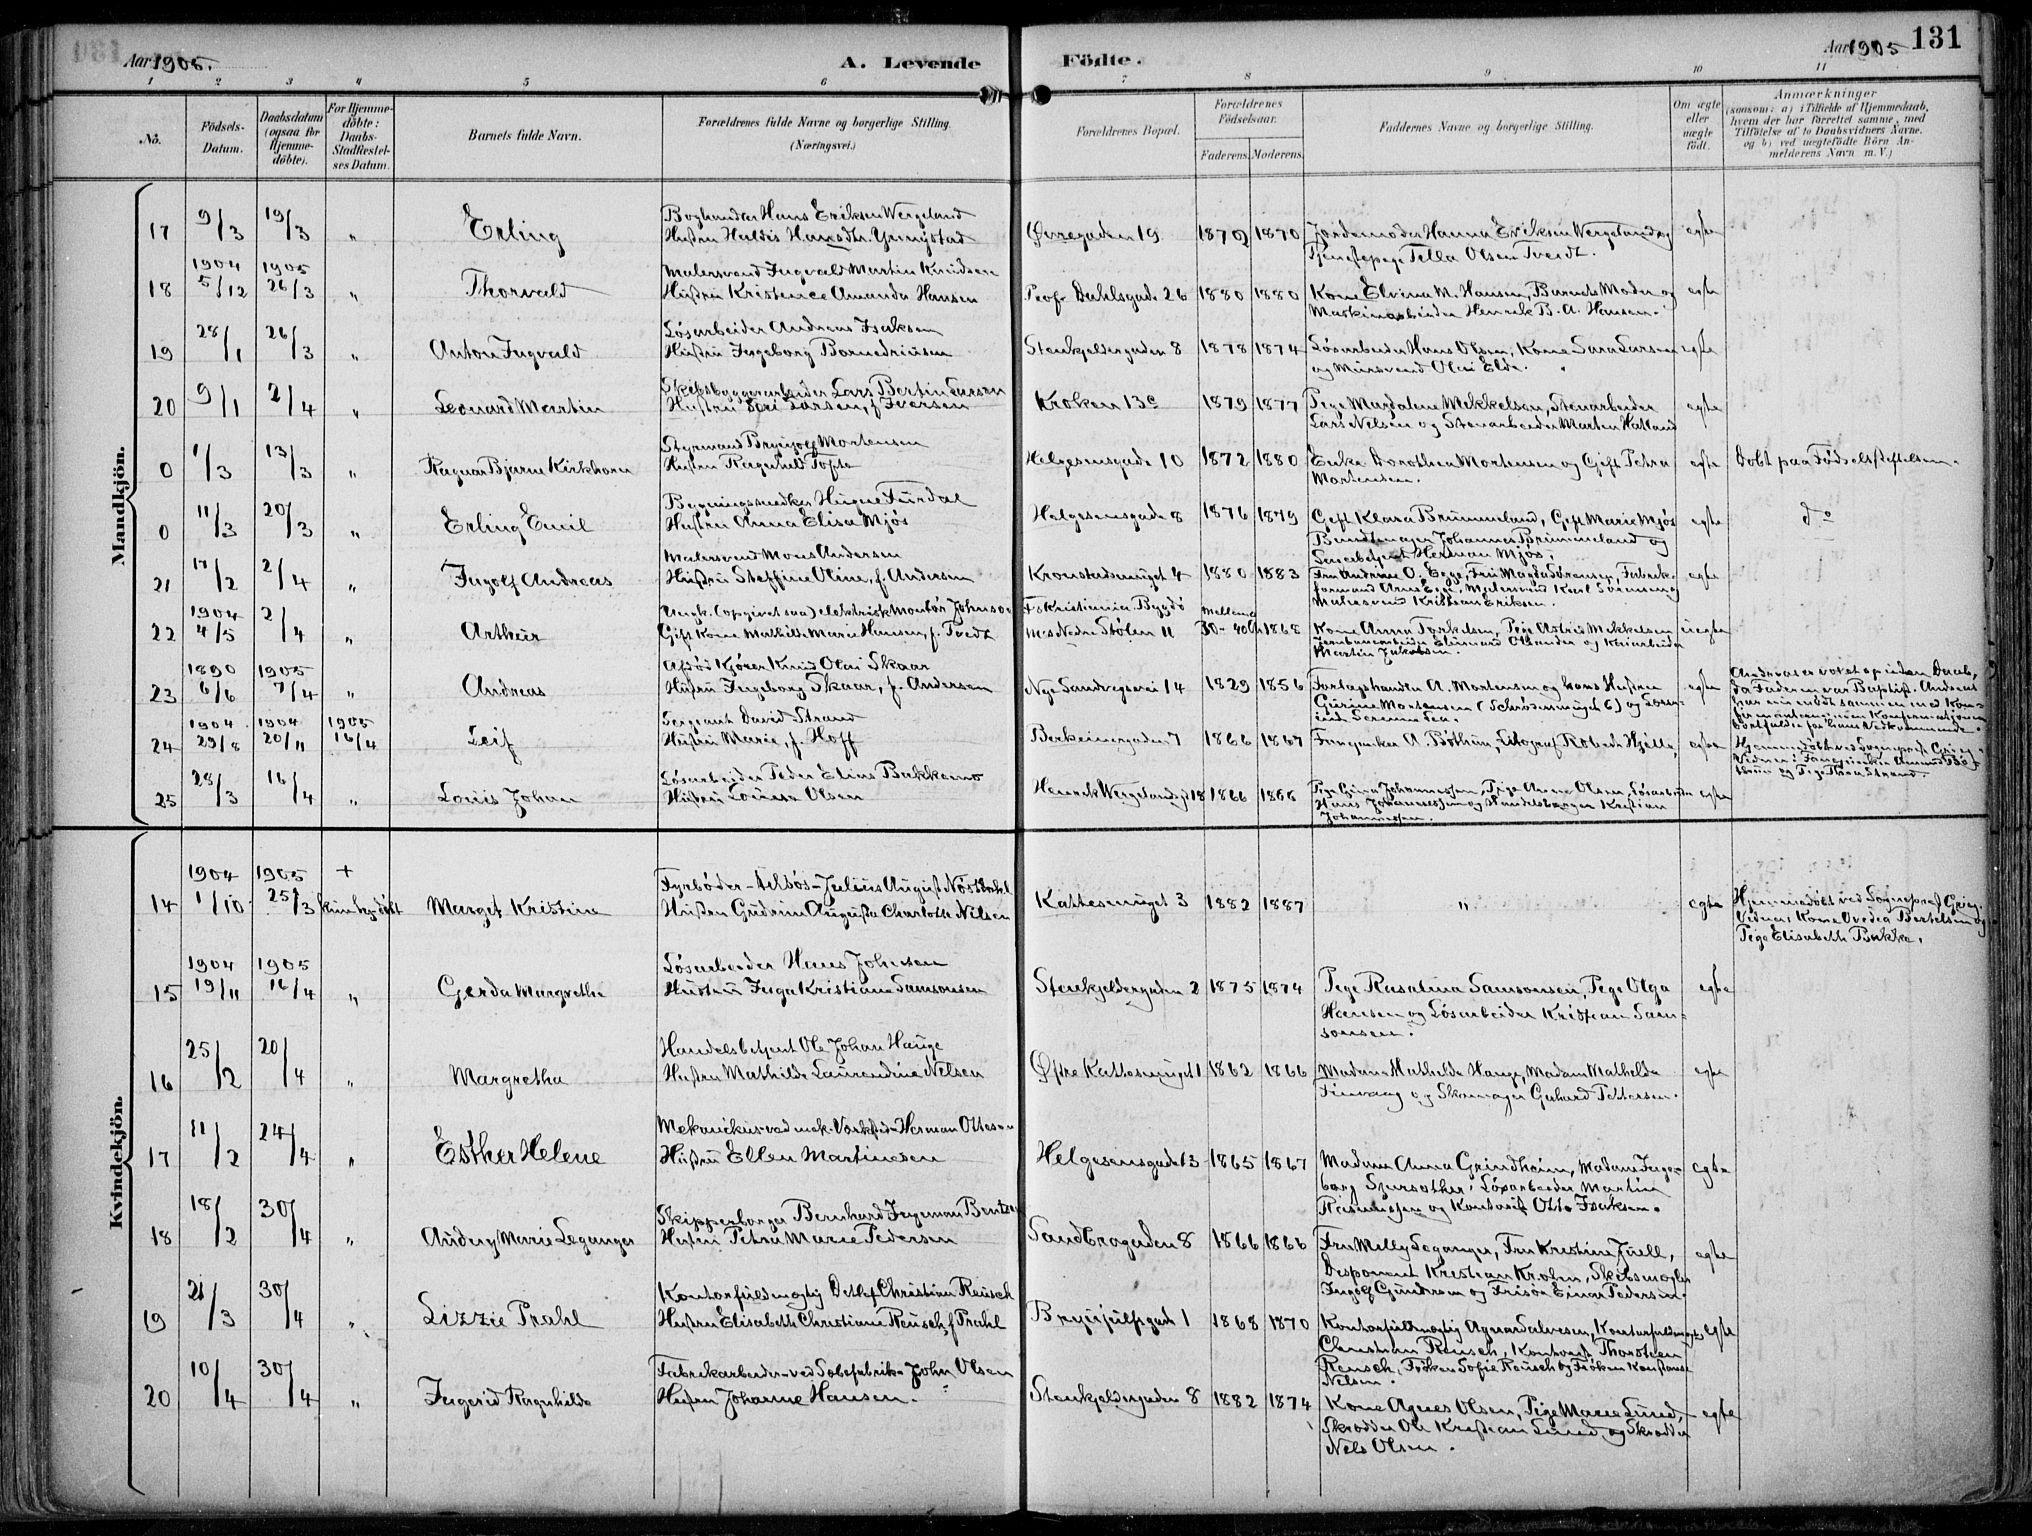 Aar 1905.
A. Levende Födte.
Aar 1905
131
1 2 3 4 5 6 7 8 9 10 11
No.
Födsels-Datum.
Daabsdatum (ogsaa for Hjemme-döbte).
For Hjemme-döbte: Daabs-Stadfæstel-ses Datum.
Barnets fulde Navn.
Forældrenes fulde Navne og borgerlige Stilling.
(Næringsvei.)
Forældrenes Bopæl.
Forældrenes Födselsaar.
Faderens. Moderens.
Faddernes Navne og borgerlige Stilling.
Om ægte eller uægte födt.
Anmærkninger
(saasom: a) i Tilfælde af Hjemmedaab,
hvem der har forrettet samme, med
Tilföielse af to Daabsvidners Navne.
og b) ved uægtefödte Börn An-
melderens Navn m. V.)
Mandkjön.
17 9/3 19/3 " Erling
Boghandler Hans Eriksen Wergeland
Hustru Haldis Hansdtr.
Øvregaden 19 1872 1870
Jordemoder Hanna Eriksen Wergeland og
Tjenestepige Tella Olsen Tveidt.
egte
18 1904 5/12 1905 26/3 " Thorvald
Malersvend Ingvald Martin Knudsen
Hustru Kristence Amanda Hansen
Prof. Dahlsgade 26 1880 1880
Kone Elvina M. Hansen, Barnets Moder og
Maskinarbeider Henrik B. A. Hansen.
egte
19 28/1 26/3 " Anton Ingvald
Løsarbeider Andreas Isaksen
Hustru Ingeborg
Stenkjeldergaden 8 1878 1874
Løsarbeider Hans Olsen, Kone Sara Larsen
og Mursvend Olai Elde.
egte
20 9/1 2/4 " Leonard Martin
Skibsbyggerarbeider Lars Bertin Larsen
Hustru Siri Larsen, f. Iversen
Kroken 13c 1879 1877
Pige Magdalene Mikkelsen, Stenarbeider
Lars Nelsen og Stenarbeider Marten Hatland
egte
0 1/3 13/3 " Ragnar Bjarne Kirkhorn
Styrmand Brynjolf Mortensen
Hustru Ragnhild Tofte
Helgesensgade 10 1872 1880
Enke Dorothea Mortensen og Gift Petra
Mortensen.
egte
Døbt paa Fødselsstiftelsen.
0 11/3 20/3 " Erling Emil
Bygningssnedker Furdal
Hustru Anna Elisa Mjøs
Helgesensgade 8 1876 1879
Gift Klara Brummeland, Gift Marie Mjøs
Bundtmager Johannes Brimmeland og
Herman Mjøs.
egte
do
21 17/2 2/4 " Ingolf Andreas
Malersvend Mons Andersen
Hustru Steffine Oline, f. Andersen
Kronstadsmuget 4 1880 1883
Fru Andrine O. Egge, Fru Magda Sørensen, Fabrik-
formand Arne Egge, Malersvend Karl Svensen og
Malersvend Kristian Eriksen.
egte
22 1904 4/5 2/4 " Arthur
Ungk. (opgivet saa) elektrisk Montør Johnson
Gift Kone Mathilde Marie Hansen, f. Tvedt
Fs Kristiania Bygdø
Ms Nedre Stølen 11
Mellem 30-40 1868
Kone Anna Torkelsen, Pige Astrid Mikkelsen
Martin Jakobsen.
uegte
23 1890 6/6 1905 7/4 " Andreas
Afdød Kjører Knud Olai Skaar
Hustru Ingeborg Skaar, f. Andersen
Nye Sandvigsvei 14 1829 1856
A. Mortensen og hans Hustru
Gurine Mortensen (Schrödersmuget 6) og
egte
Andreas er voxet op uden Daab,
da Faderen var Baptist.
24 1904 29/8 1904 20/11 1905 16/4 Leif
Sergeant David Strand
Hustru Marie, f. Hoff
7 1866 1867
A. Bøthun, Litograf
egte
Hjemmedøbt ved Sogneprest Grieg.
25 28/3 16/4 " Louis Johan
Løsarbeider Peder Elias Bakkemo
Hustru Lovise Olsen
Henrik Wergelandsgd 18 1866 1866
Pige Gina Johannessen, Pige Anna Olsen, Løsarbeider
Hans Johannessen og Handelsborger Kristian
Johannessen.
egte
Kvindekjön.
14 1904 1/10 1905 25/3 + kun hj. døbt Margit Kristine
Fyrbøder - Julius August
Hustru Gudrun Augusta Charlotte Nilsen
Kattesmuget 3 1882 1887
"
egte
Hjemmedøbt ved Sogneprest Grieg.
Vidner: Kone Ovedia Bertelsen og
Pige Elisabeth Bakke.
15 1904 19/11 1905 16/4 " Gerda Margrethe
Løsarbeider Hans Johnsen
Hustru Inga Kristiane Samsonsen
Stenkjeldergaden 2 1875 1874
Pige Rasalina Samsonsen, Pige Olga
Hansen og Løsarbeider Kristian Sam-
sonsen.
egte
16 25/2 20/4 " Margretha
Handelsbetjent Ole Johan Hauge
Hustru Mathilde Laurendine Nelsen
Øfre Kattesmuget 1 1862 1866
Madam Mathilda Hauge, Madam Mathilda
og Skomager Gerhard Pettersen.
egte
17 11/2 24/4 " Esther Helene
Mekanikus ved mek. Verksted Herman Ottesen
Hustru Ellen Martinesen
Helgesensgade 13 1865 1867
Madam Anna Grindheim, Madam Inge-
borg Løsarbeider Martin
Rasmussen og Kontorist Otto Isaksen.
egte
18 18/2 30/4 " Audny Marie Leganger
Skipperborger Bernhard Ingeman Bentzen
Hustru Petra Marie Pedersen
Sandbrogaden 8 1866 1866
Fru Milly Leganger, Fru Kristine Juell,
Disponent Kristian Krohn, Skibsmægler
Ingolf Gundersen og Frisør Einar Pedersen.
egte
19 21/3 30/4 " Lizzie Prahl
Kontorfuldmægtig Detlef Christian Reusch
Hustru Elisabeth Christiane Reusch, f. Prahl
Brynjulfsgade 1 1868 1870
Kontorfuldmægtig Salvesen, Kontorfuldmægt.
Christian Reusch, Kontorist Thorstein
Reusch, Frøken Sofie Reusch og Frøken Konstanse
Nelsen.
egte
20 10/4 30/4 " Ingerid Ragnhilda
Fabrikarbeider ved Sæbefabrik John Olsen
Hustru Johanne Hansen.
Stenkjeldergaden 8 1882 1874
Kone Agnes Olsen, Pige Marie Lund,
Skrædder Ole Kristian Lund og Skrædder
Nels Olsen.
egte